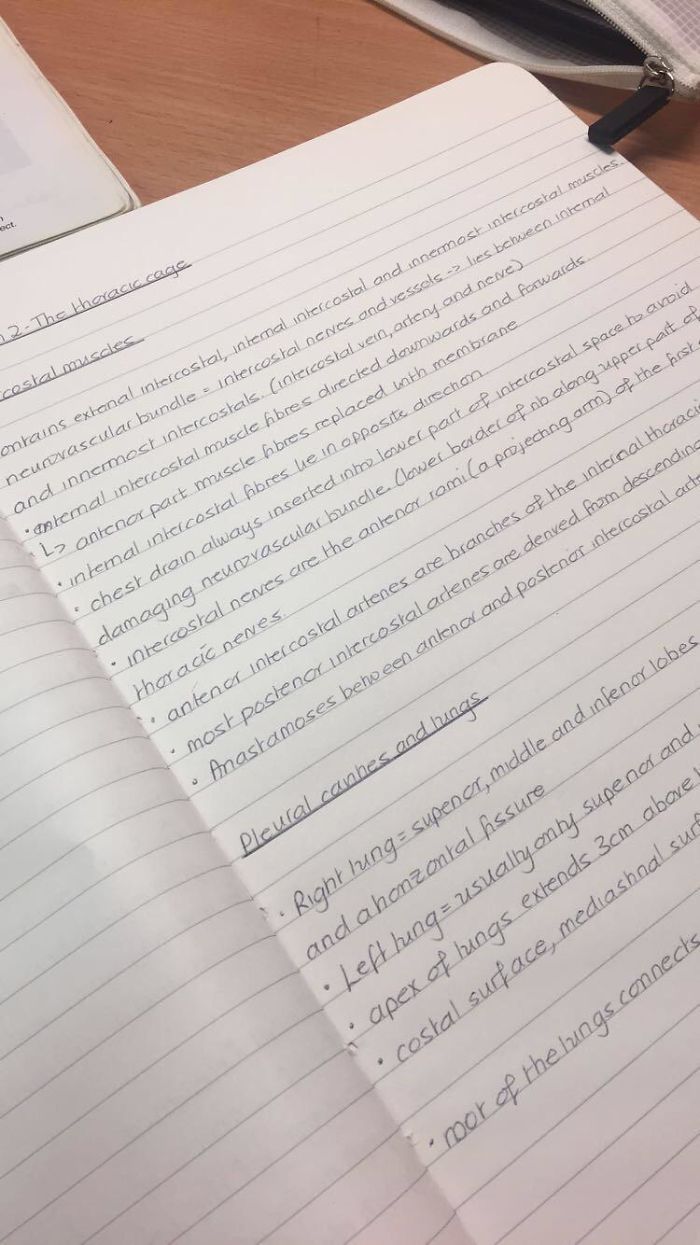 n
ect.
n.2 - The thoracic cage
rcostal muscles
ontains external intercostal, internal intercostal and innermost intercostal muscles.
neurovascular bundle = intercostal nerves and vessels -> lies between internal
and innermost intercostals. (intercostal vein, artery and nerve)
• internal intercostal muscle fibres directed downwards and forwards
↳ anterior part muscle fibres replaced with membrane
• internal intercostal fibres lie in opposite direction
• chest drain always inserted into lower part of intercostal space to avoid
damaging neurovascular bundle. (lower border of rib along upper part of
• intercostal nerves are the anterior rami (a projecting arm) of the first
thoracic nerves.
• anterior intercostal arteries are branches of the internal thoraci
• most posterior intercostal arteries are derived from descending
• Anastamoses between anterior and posterior intercostal arte
Pleural cavities and lungs
• Right lung = superior, middle and inferior lobes
and a horizontal fissure
• Left lung = usually only superior and
• apex of lungs extends 3cm above
• costal surface, mediastinal surf
• root of the lungs connects